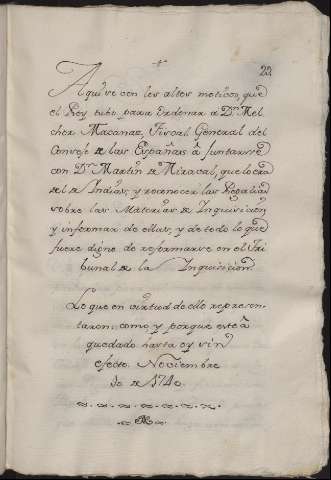 22
Aqui se ven los altos motivos, que
el Rey tubo para ordenar a Dn. Mel
chor Macanaz, Fiscal General del
Consejo de las Españas â juntarse
con Dn. Martin de Miraval, que lo era
del de Indias, y reconocer las Regalias
sobre las Materias de Inquisicion
y informar de ellas, y de todo lo que
fuere digno de reformarse en el Tri
bunal de la Inquisicion.
Lo que en virtud de ello represen-
taron: como y porque este â
quedado hasta oy sin
efecto. Noviembre
1o de 1740.